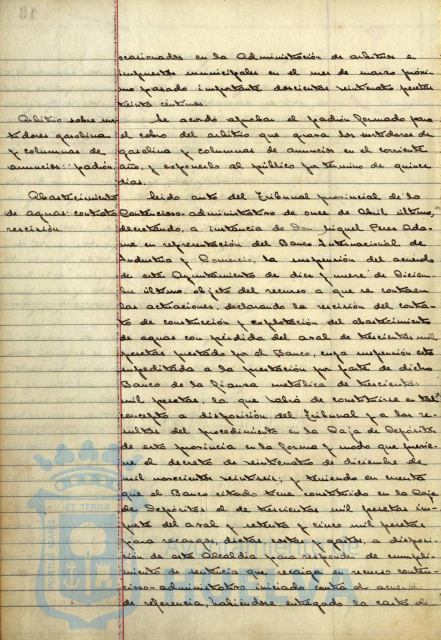 ocasionados en la Administración de arbitrios e
impuestos municipales en el mes de marzo próxi-
mo pasado importante doscientas veintinueve pesetas
veinte céntimos.
Arbitrio sobre sur-
tidores gasolina
y columnas de
anuncios: padrón.
Se acordó aprobar el padrón formado para
el cobro del arbitrio que grava los surtidores de
gasolina y columnas de anuncios en el corriente
año, y exponerlo al público por término de quince
días.
Abastecimiento
de aguas: contrato
rescisión.
Leido auto del Tribunal provincial de lo
Contencioso-administrativo de once de Abril último,
decretando, a instancia de Don Miguel Perez Ada-
me en representación del Banco Internacional de
Industria y Comercio, la suspensión del acuerdo
de este Ayuntamiento de diez y nueve de Diciem-
bre último, objeto del recurso a que se contraen
las actuaciones, declarando la rescisión del contra-
to de construcción y explotación del abastecimiento
de aguas con pérdida del aval de trescientas mil
pesetas prestado por el Banco, cuya suspensión está
supeditada a la prestación por parte de dicho
Banco de la fianza metálica de trescientas
mil pesetas, la que habrá de constituirse en tal
concepto a disposición del Tribunal y a las re-
sultas del procedimiento en la Caja de Depósitos
de esta provincia en la forma y modo que previe-
ne el decreto de veinticuatro de diciembre de
mil novecientos veintiseis; y teniendo en cuenta
que el Banco citado tiene constituido en la Caja
de Depósitos el de trescientas mil pesetas im-
porte del aval y setenta y cinco mil pesetas
para recargos, dietas, costas y gastos, a disposi-
ción de esta Alcaldía para responder de cumpli-
miento de sentencia que recaiga en recurso conten-
cioso-administrativo iniciado contra el acuerdo
de referencia, habiendose entregado la carta de